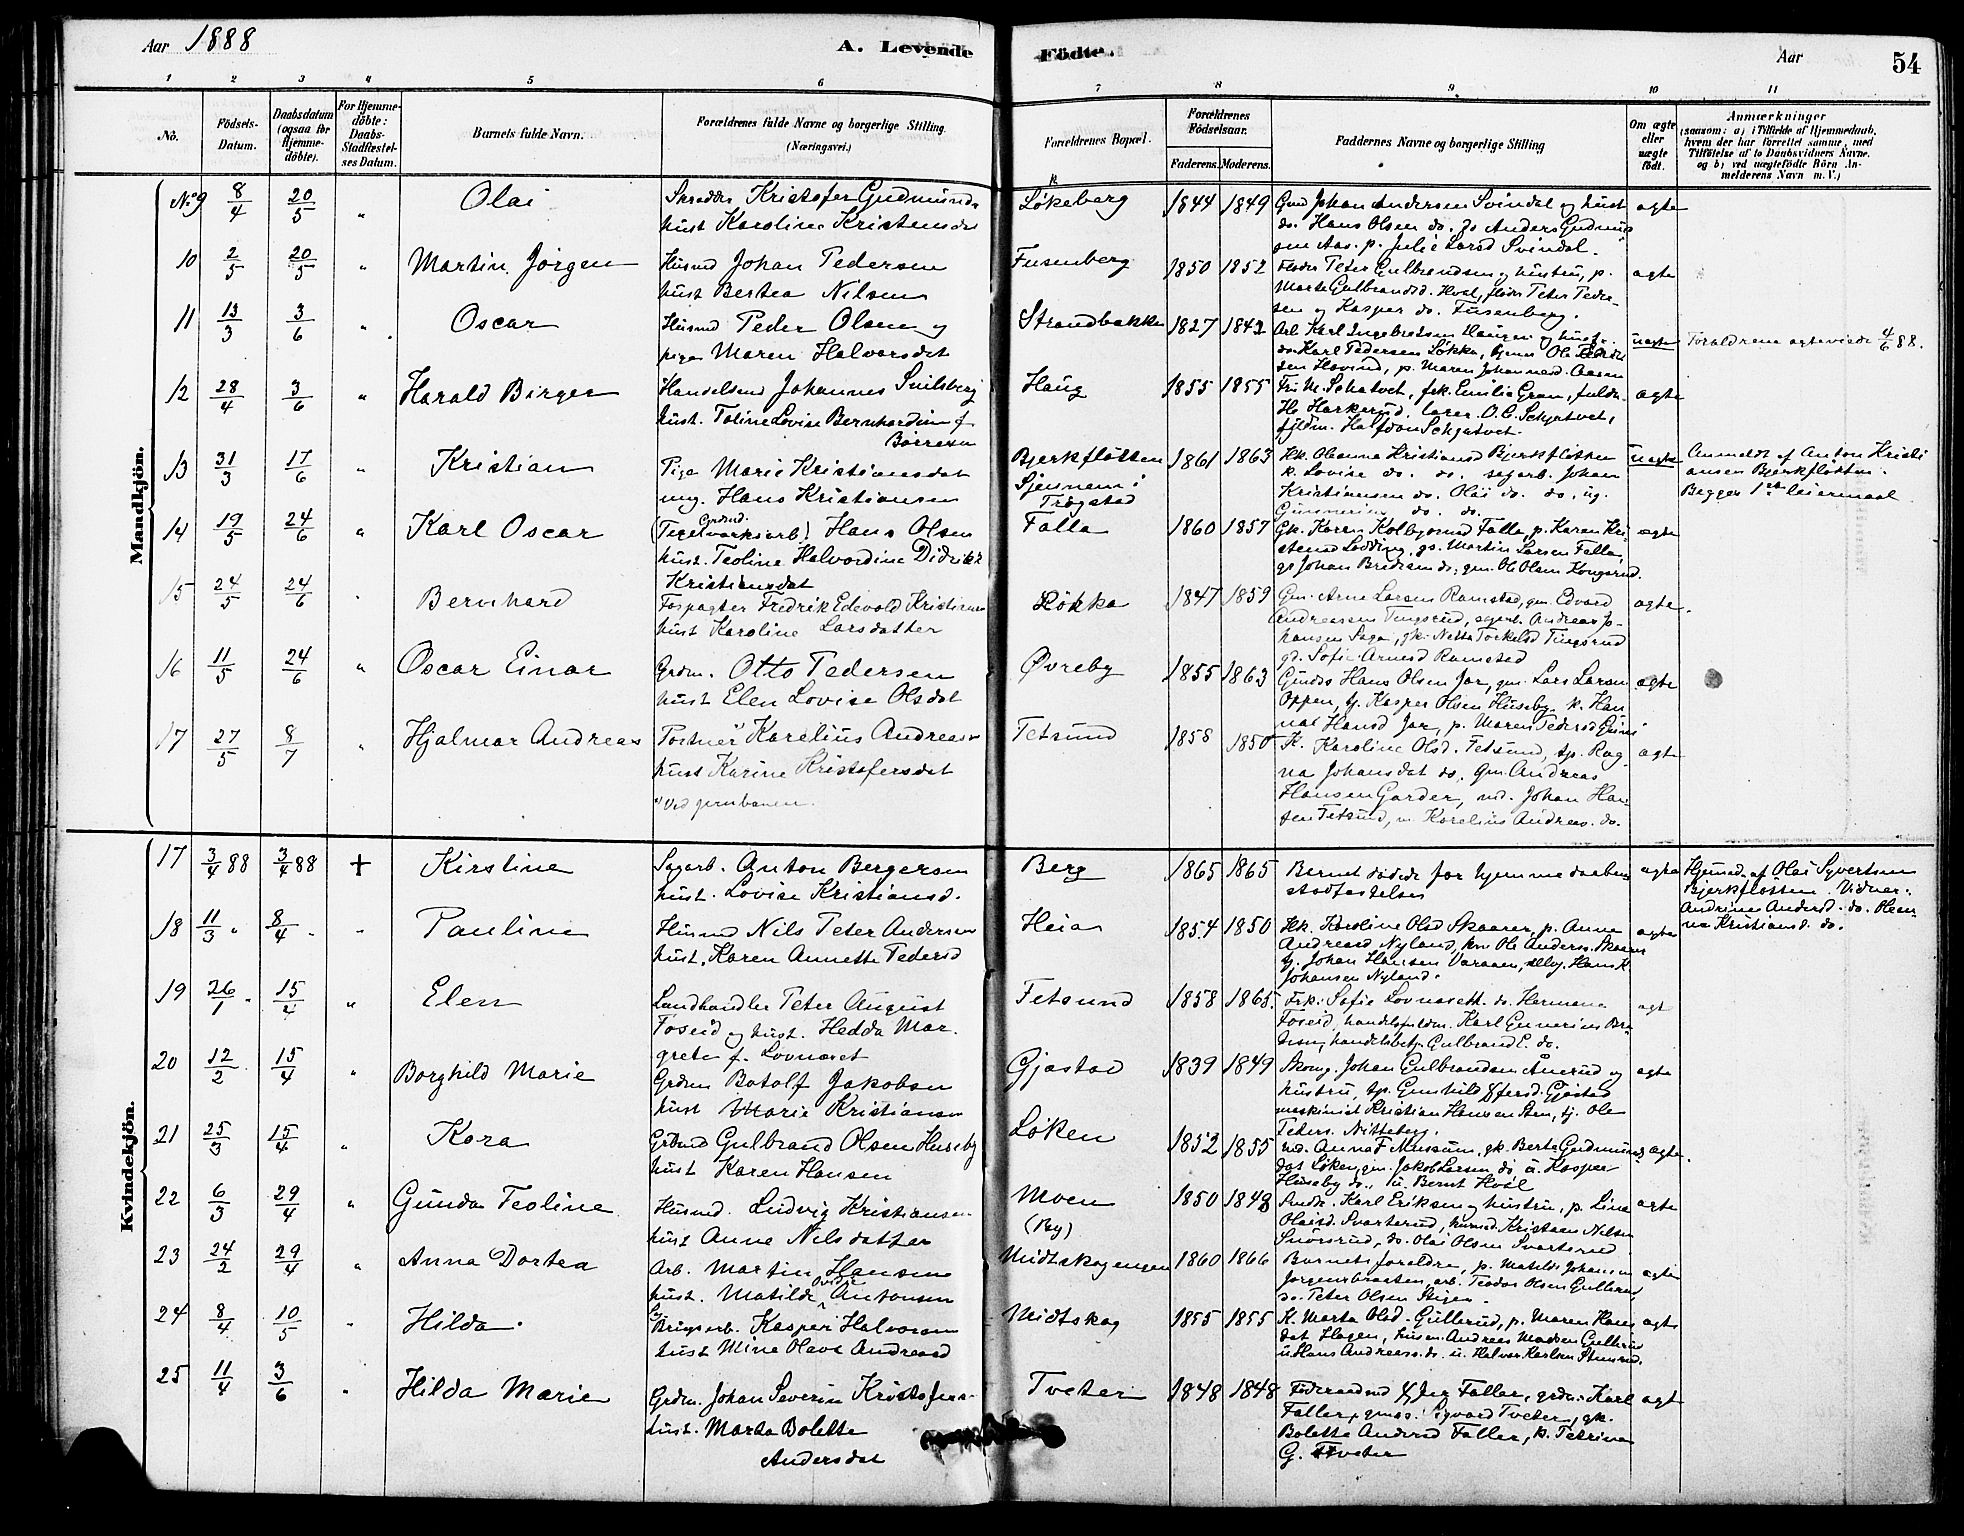 Aar 1888
A. Levende
Födte.
Aar
54
1 2 3 4 5 6 7 8 9 10 11
No.
Födsels-Datum.
Daabsdatum (ogsaa for Hjemme-döbte).
For Hjemme-döbte: Daabs-Stadfæstel-ses Datum.
Barnets fulde Navn.
Forældrenes fulde Navne og borgerlige Stilling. (Næringsvei.)
Forældrenes Bopæl.
Forældrenes Födselsaar.
Faderens. Moderens.
Faddernes Navne og borgerlige Stilling
Om ægte eller uægte födt.
Anmærkninger
(saasom: a) i Tilfælde af Hjemmedaab,
hvem der har forrettet samme, med
Tilföielse af to Daabsvidners Navne.
og b) ved uægtefödte Börn An-
melderens Navn m. V.)
Mandkjön.
No 9 8/4 20/5 " Olai
Kristofer Gudmunds
hust Karoline Kristensdat
Løkeberg 1844 1849
Gmd Johan Andersen Svindal og hust
do. Hans Olsen do. do Anders Gudmund
sen Aas. p. Julie Larsd Svindal.
ægte
10 2/5 20/5 " Martin Jørgen
Husmd Johan Pedersen
hust Bertea Nilsen
Fusenberg 1850 1852
Peter Gulbrandsen og hustru, p.
Marte Gulbrandsd. Hval, Peter Peder-
sen og Kasper do. Fusenberg.
ægte
11 13/3 3/6 " Oscar
Husmd Peder Olsen og
pige Maren Halvorsdat
Strandbakken 1827 1842
Arb. Karl Ingebretsen Haugen og hust.
do. Karl Pedersen Løkka, Ole Peder
sen Hovind, p. Maren Johannesd. Aasen
uægte
Forældrene ægteviede 4/6 88.
12 28/4 3/6 " Harald Birger
Handelsmd Johannes Snilsberg
hust. Toline Lovise Bernhardine f.
Børresen
Haug 1855 1855
Fru M. Schatvet, frk. Emilie Gran, fuldm.
H. Harkerud, lærer O. C. Schjatvet,
fuldm. Halfdan Schjatvet.
ægte
13 31/3 17/6 " Kristian
Pige Marie Kristiansdat
ung. Hans Kristiansen
Bjerkfløtten
Sjennem i
Trøgstad
1861 1863
Hk. Oleanna Kristiansd Bjerkfløtten
k. Lovise do. do. sagarb. Johan
Kristiansen do. Olai do. do. ug.
Gunnerius do. do.
uægte
Anmeldt af Anton Kristi
ansen Bjerkfløtten.
Begges 1ste leiermaal
14 19/5 24/6 " Karl Oscar
Grdmd.
(Tegelværksarb.) Hans Olsen
hust. Teoline Halvordine Didrikke
Kristiansdat
Falla 1860 1857
Gk. Karen Kolbjørnsd Falla, p. Karen Kri
stensd Lødding, gs. Martin Larsen Falla,
gs Johan Bredesen do., gm. Ole Olsen Kongsrud.
ægte
15 24/5 24/6 " Bernhard
Forpagter Fredrik Edevold Kristiansen
hust Karoline Larsdatter
Løkka 1847 1859
Gm. Arne Larsen Ramstad, gm. Edvard
Andreassen Tingsrud, sagarb. Andreas Jo-
hansen Saga, gk. Netta Torkelsd Tingsrud
gd. Sofie Arnesd Ramstad
ægte.
16 11/5 24/6 " Oscar Einar
Grdm. Otto Pedersen
hust Elen Lovise Olsdat
Øvreby 1855 1863
Hans Olsen Jar, gm. Lars Larsen
Oppen, tj. Kasper Olsen Huseby, k. Han
na Hansd Jar, p. Maren Pedersd
ægte
17 27/5 8/7 " Hjalmar Andreas
Portner" Karelius Andreasen
hust Karine Kristofersdat
"Ved jernbanen.
Fetsund 1858 1850
K. Karoline Olsd. Fetsund, tp. Rag
na Johansdat do. Gm. Andreas
Hansen Garder, Johan Han
sen Fetsund, Karelius Andreas. do.
ægte
Kvindekjön.
17 3/4 88 3/4 88 + Kirstine
Sagarb. Anton Bergersen
hust. Lovise Kristiansd.
Berg 1865 1865
Barnet døde før hjemmedaabens
stadfæstelse
ægte
Hjemmed. af Olai Syvertsen
Bjerkfløtten. Vidner:
Andrine Andersd. do. Olean-
na Kristiansd. do.
18 11/3 " 8/4 " " Pauline
Husmd Nils Peter Andersen
hust. Karen Annette Pedersd
Heia 1854 1850
Hk. Karoline Olsd Skaarer, p. Anne
Andreasd Nyland, Ole Anders. Skaarer
tj. Johan Hansen Varaaen, Hans K.
Johansen Nyland.
ægte
19 26/1 " 15/4 " Elen
Landhandler Peter August
Foseid og hust. Hedda Mar.
grete f. Lovnæset
Fetsund 1858 1865.
Frk. Sofie Lovnæseth. do. Hermana
Foseid, handelsfuldm. Karl Gunerius Bre
desen, handelsbetj. Gulbrand E. do.
ægt
20 12/2 15/4 " Borghild Marie
Grdm Botolf Jakobsen
hust Marie Kristiansen
Gjøstad 1839 1849
Skomg. Johan Gulbrandsen Aamrud og
hustru, tp. Gunhild Gjøstad
maskinist Kristian Hansen Sten, tj. Ole
Peders. Nitteberg.
ægte
21 25/3 15/4 " Kora
Grdmd Gulbrand Olsen Huseby
hust Karen Hansen
Løken 1852 1855
Anna F. Museum, gk. Berte Gudmunds
dat Løken, gm. Jakob Larsen do u. Kasper
Huseby do., u. Bernt Hvål
ægte.
22 6/3 29/4 " Gunda Teoline
Husmd. Ludvig Kristiansen
hust Anne Nilsdatter
Moen
(By)
1850 1848
Karl Eriksen og hustru, p. Lina
Olaisd. Svarterud, husmd. Kristian Nilsen
do. Olai Olsen Svartsrud
ægte
23 24/2 29/4 " Anna Dortea
Arb. Martin Hansen
hust. Matilde Ovidie Antonsen
Midtskogengen 1860 1866
Barnets forældre, p. Matilde Johansen
Jørgensbraaten, arb. Teodor Olsen Gullerud
do. Peter Olsen Stigen.
ægte
24 8/4 10/5 " Hilda.
Brugsarb. Kasper Halvorsen
hust Mine Olave Andreasd
Midtskog 1855 1855
K. Marta Olsd. Gullerud, p. Maren Hans
dat Hagen, Andreas Madsen Gullerud
u. Hans Andreass. do. u. Halvor Karlsen
ægte
25 11/4 3/6 " Hilda Marie
Grdm. Johan Severin Kristofersen
hust. Marta Bolette
Andersdat
Tveter 1848 1848
Føderaadsmd Faller, grdm. Karl
Faller, Sigvard Tveter, gk.
Bolette Andersd Faller, k. Petrine
G. Tveter
ægt